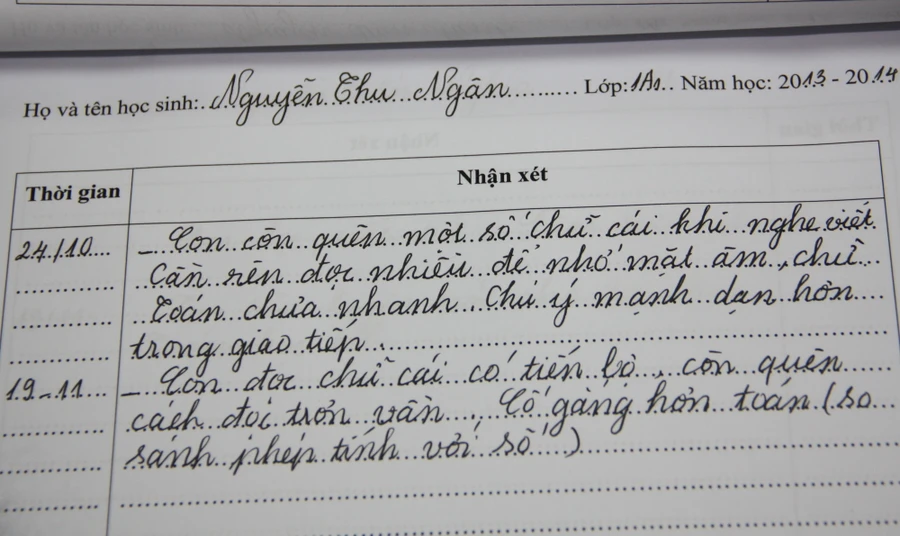 Họ và tên học sinh: Nguyễn Thu Ngân Lớp: 1A1 Năm học: 2013 - 2014
Thời gian Nhận xét
24/10 - Con còn quên một số chữ cái khi nghe viết.
Cần rèn đọc nhiều để nhớ mặt âm, chữ
Toán chưa nhanh. Chú ý mạnh dạn hơn
trong giao tiếp.
19-11 - Con đọc chữ cái có tiến bộ, còn quên
cách đọc trơn vần. Cố gắng hơn toán (so
sánh phép tính với số)